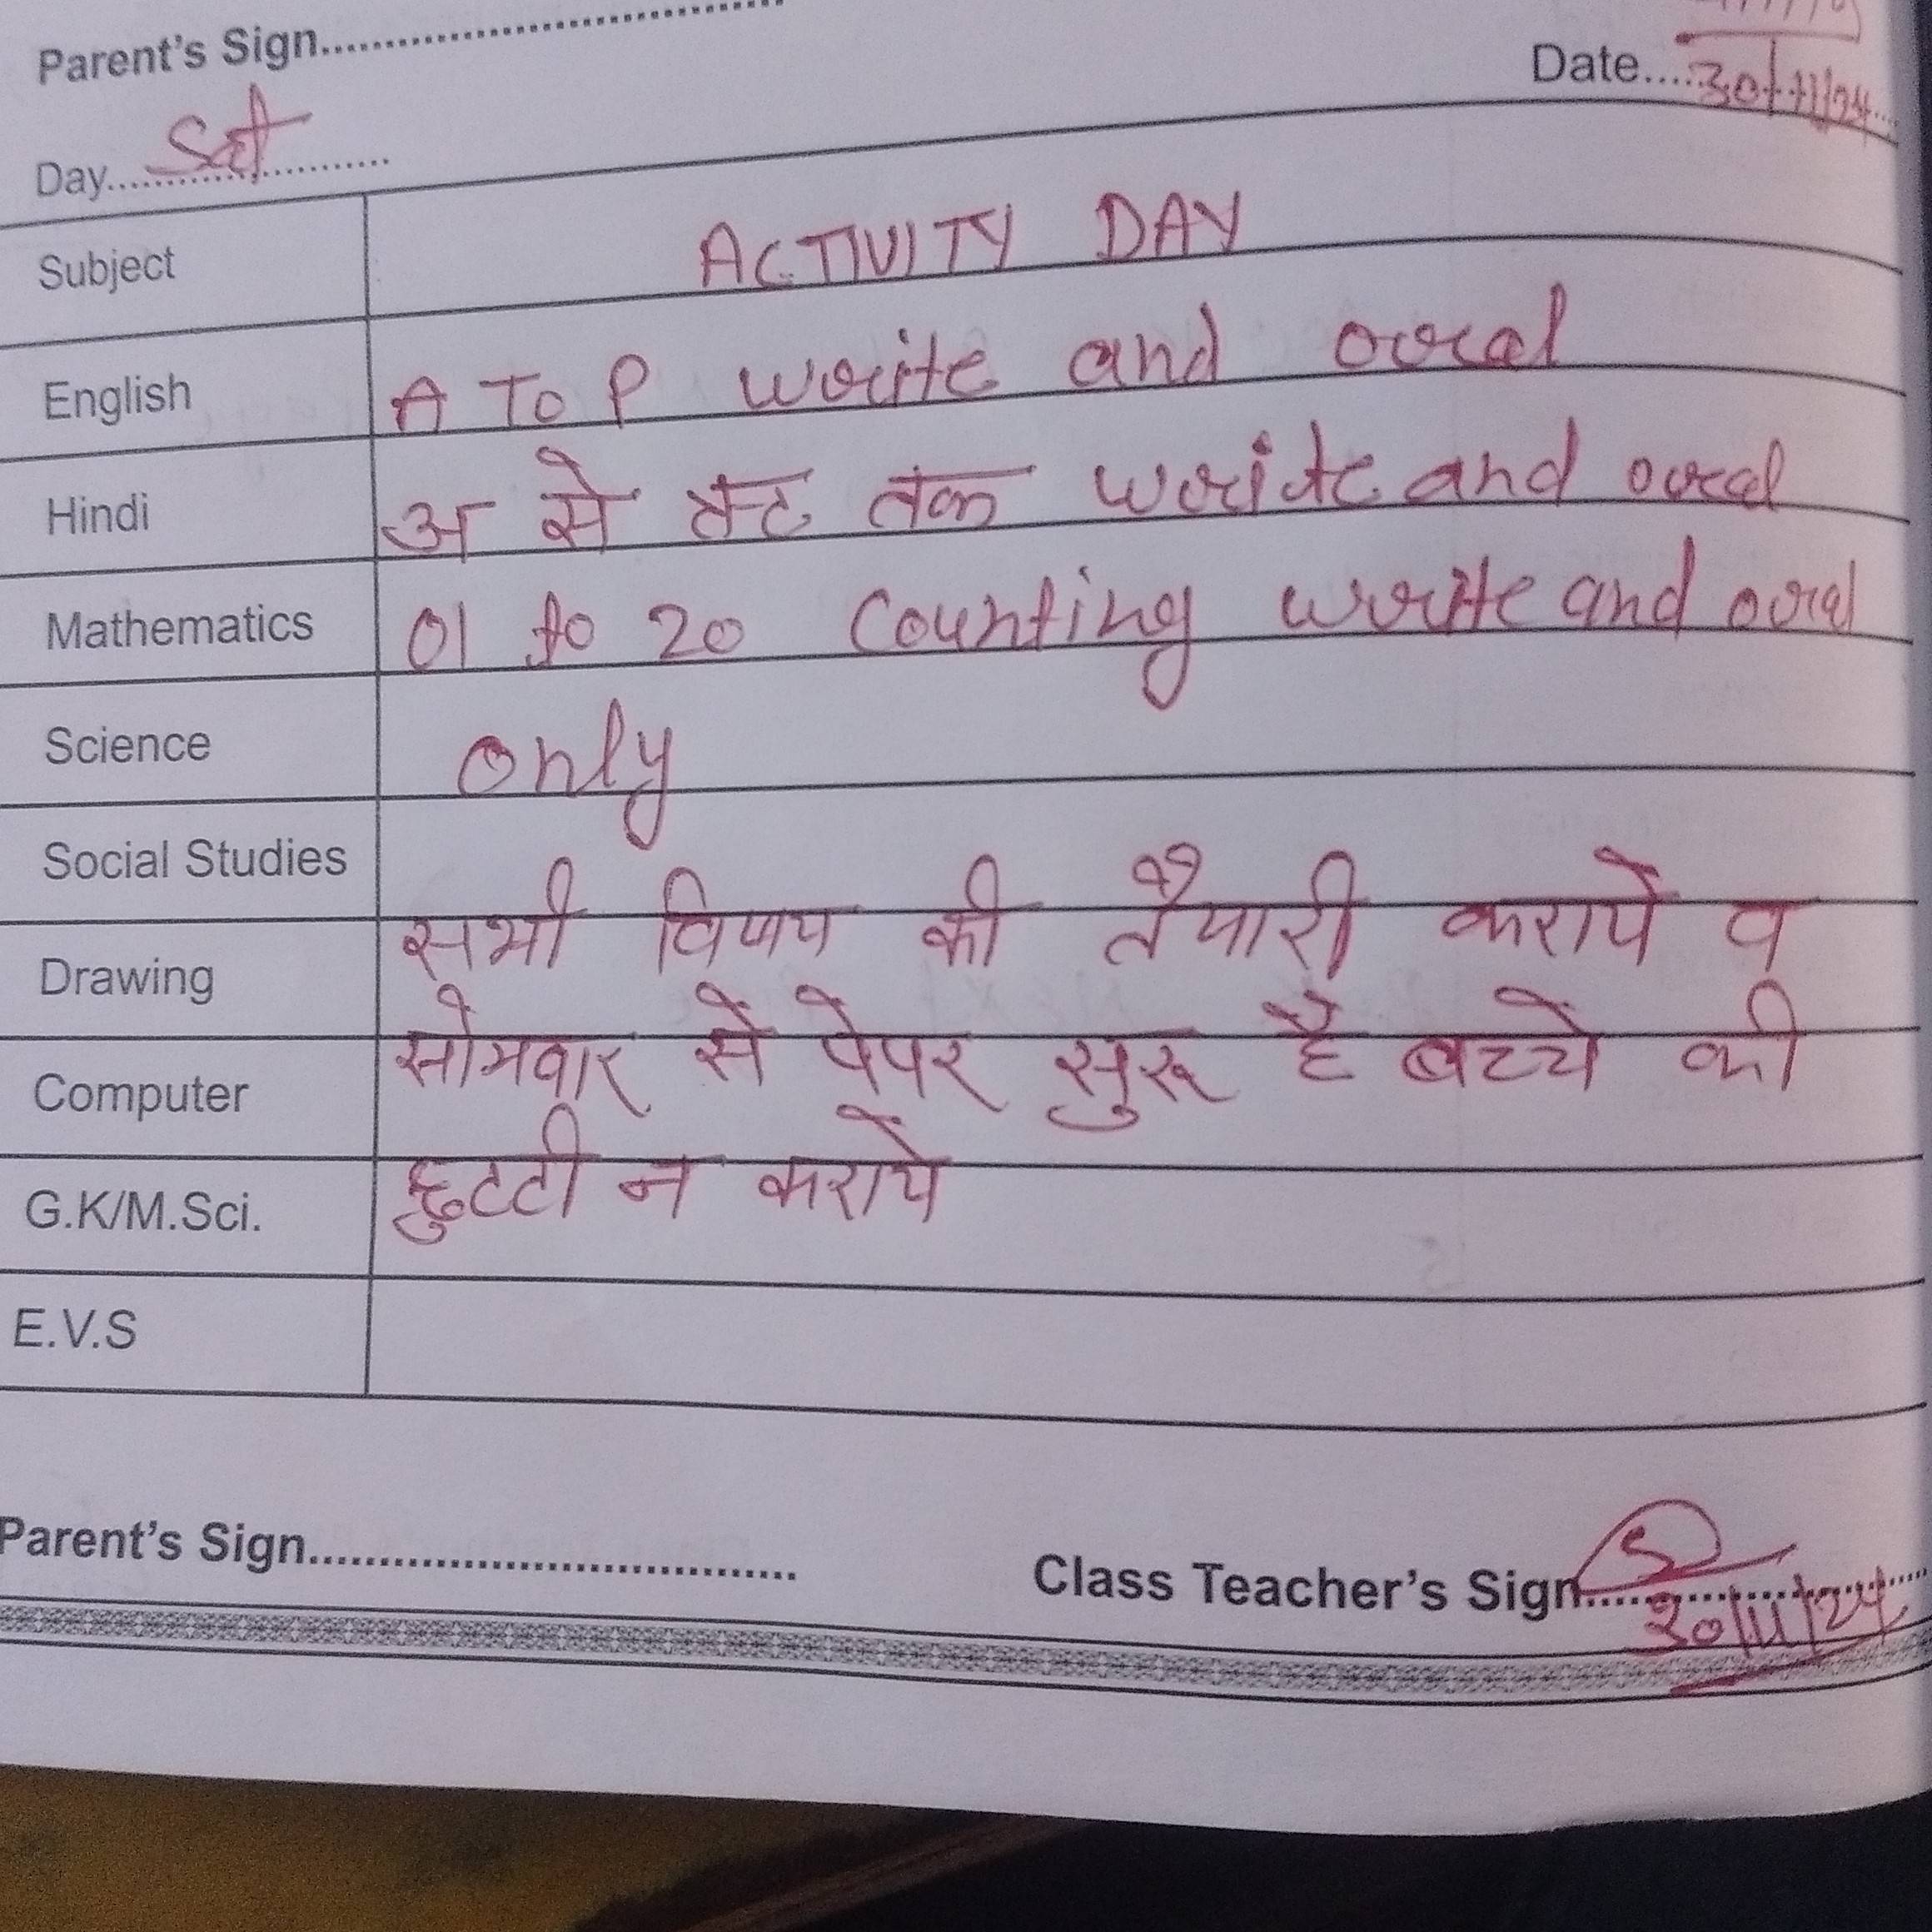 Parent's Sign..............................
Date....30/11/24....
Day....Sat............
Subject ACTIVITY DAY
English A To P write and oral
Hindi अ से तक write and oral
Mathematics 01 to 20 Counting write and oral
Science only
Social Studies
Drawing सभी विषय की तैयारी कराये व
Computer सोमवार से पेपर सुरू है बच्चे की
G.K/M.Sci. छुटटी न कराये
E.V.S
Parent's Sign..............................
Class Teacher's Sign..............................
30/11/24